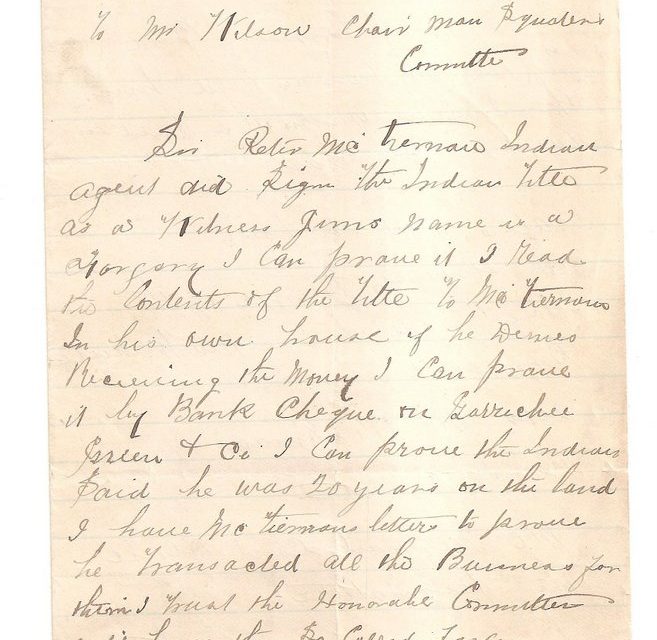 To Mr Wilson Chair Man Squatters
Committe
Sir Peter McTiernan Indian
agent did Sign the Indian Title
as a Witness Jims name is a
Forgery I Can prove it I Read
the Contents of the Title to McTiernan
In his own house if he Denies
Receiving the Money I Can prove
it by Bank Cheque on Garrichee
Green & Co I Can prove the Indian
Said he was 20 years on the land
I have McTiernans letters to prove
he transacted all the Business for
them I trust the Honorable Committee